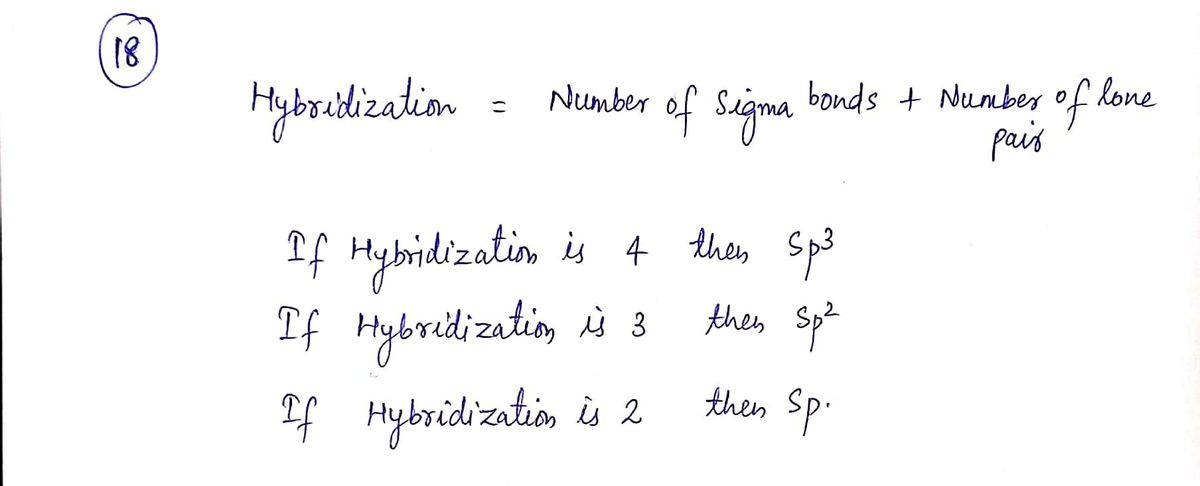 18
Hybridization = Number of Sigma bonds + Number of lone
pair
If Hybridization is 4 then Sp³
If Hybridization is 3 then Sp²
If Hybridization is 2 then Sp.